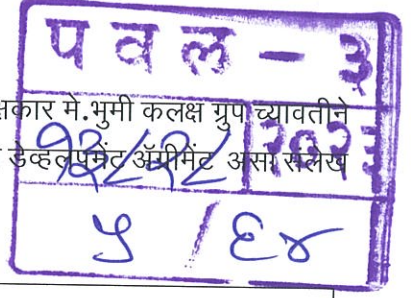 पवल - ३
क्षकार मे.भुमी कलक्ष ग्रुप च्यावतीने
डेव्हलपमेंट ॲग्रीमेंट असा सलेख
२०२३
५ / ६४